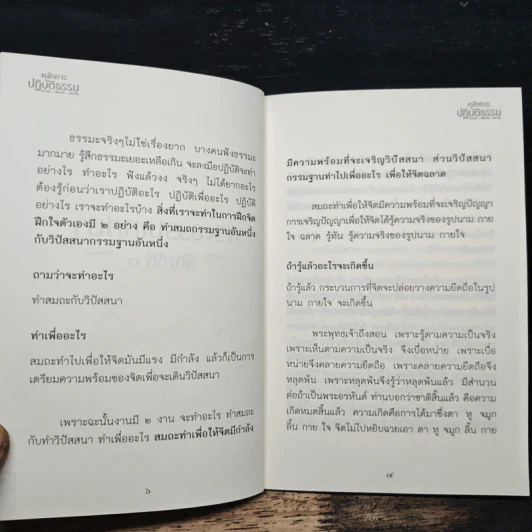 หลักการ
ปฏิบัติธรรม
ธรรมะจริงๆไม่ใช่เรื่องยาก บางคนฟังธรรมะ
มากมาย รู้สึกธรรมะเยอะเหลือเกิน จะลงมือปฏิบัติจะทำ
อย่างไร ทำอะไร ฟังแล้วงง จริงๆ ไม่ได้ยากอะไร
ต้องรู้ก่อนว่าเราปฏิบัติอะไร ปฏิบัติเพื่ออะไร ปฏิบัติ
อย่างไร เราจะทำอะไรบ้าง สิ่งที่เราจะทำในการฝึกจิต
ฝึกใจตัวเองมี ๒ อย่าง คือ ทำสมถกรรมฐานอันหนึ่ง
กับวิปัสสนากรรมฐานอันหนึ่ง
ถามว่าจะทำอะไร
ทำสมถะกับวิปัสสนา
ทำเพื่ออะไร
สมถะทำไปเพื่อให้จิตมันมีแรง มีกำลัง แล้วก็เป็นการ
เตรียมความพร้อมของจิตเพื่อจะเดินวิปัสสนา
เพราะฉะนั้นงานมี ๒ งาน จะทำอะไร ทำสมถะ
กับทำวิปัสสนา ทำเพื่ออะไร สมถะทำเพื่อให้จิตมีกำลัง
๖
หลักการ
ปฏิบัติธรรม
มีความพร้อมที่จะเจริญวิปัสสนา ส่วนวิปัสสนา
กรรมฐานทำไปเพื่ออะไร เพื่อให้จิตฉลาด
สมถะทำเพื่อให้จิตมีความพร้อมที่จะเจริญปัญญา
การเจริญปัญญาเพื่อให้จิตได้รู้ความจริงของรูปนาม กาย
ใจ ฉลาด รู้ทัน รู้ความจริงของรูปนาม กายใจ
ถ้ารู้แล้วอะไรจะเกิดขึ้น
ถ้ารู้แล้ว กระบวนการที่จิตจะปล่อยวางความยึดถือในรูป
นาม กายใจ จะเกิดขึ้น
พระพุทธเจ้าถึงสอน เพราะรู้ตามความเป็นจริง
เพราะเห็นตามความเป็นจริง จึงเบื่อหน่าย เพราะเบื่อ
หน่ายจึงคลายความยึดถือ เพราะคลายความยึดถือจึง
หลุดพ้น เพราะหลุดพ้นจึงรู้ว่าหลุดพ้นแล้ว มีสำนวน
ต่อถ้าเป็นพระอรหันต์ ท่านบอกว่าชาติสิ้นแล้ว คือความ
เกิดหมดสิ้นแล้ว ความเกิดคือการได้มาซึ่งตา หู จมูก
ลิ้น กาย ใจ จิตไม่ไปหยิบฉวยเอา ตา หู จมูก ลิ้น กาย
๗